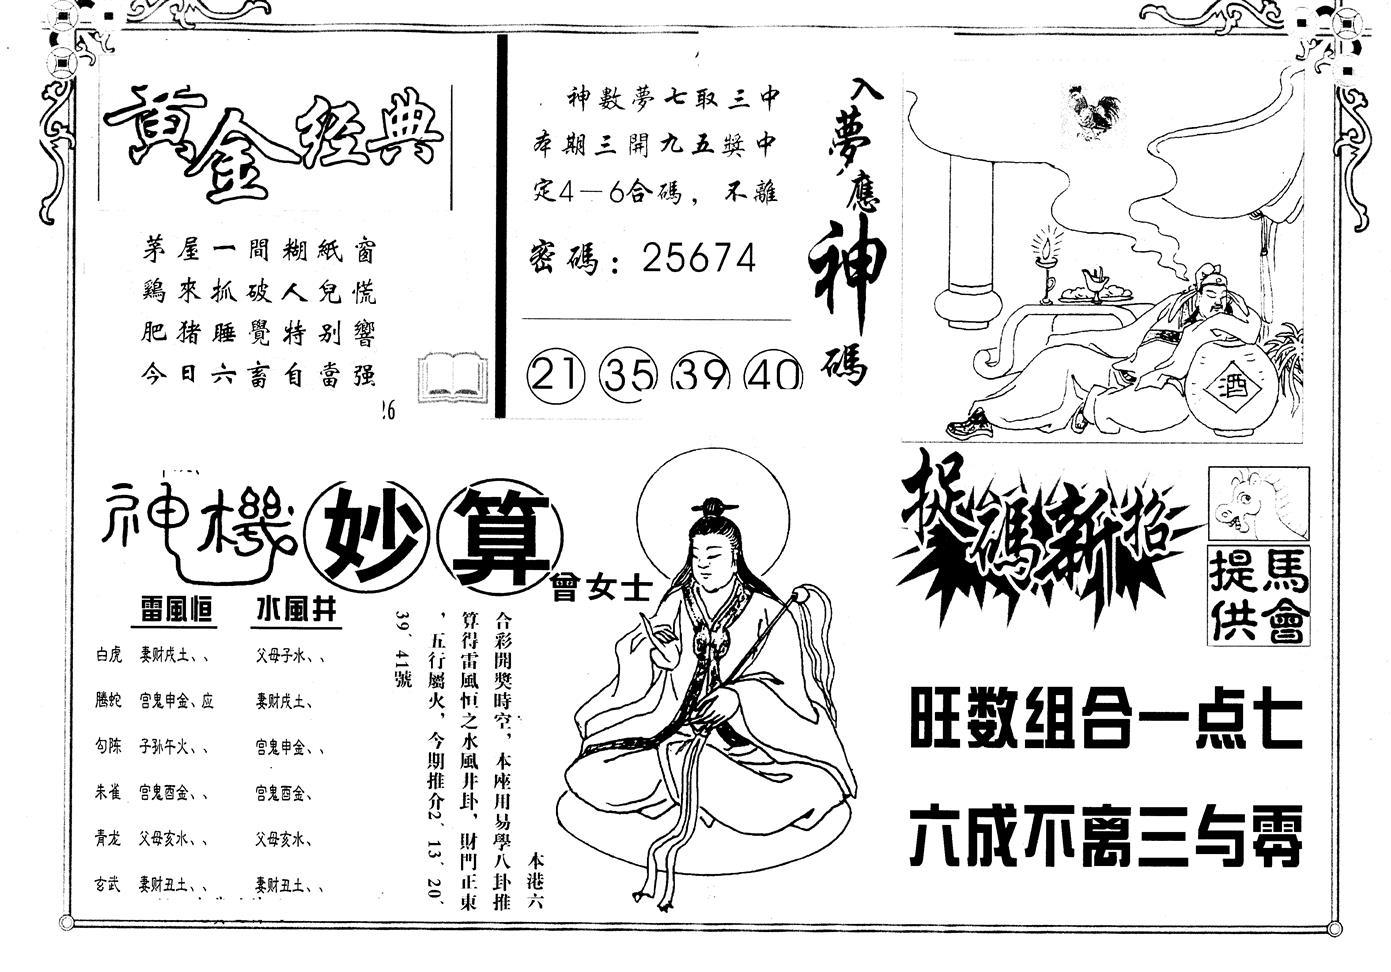 黃金經典
茅屋一間糊紙窗
鷄來抓破人兒慌
肥猪睡覺特别響
今日六畜自當强
26
神數夢七取三中
本期三開九五獎中
定4—6合碼，不離
密碼：25674
21 35 39 40
入夢應神碼
酒
神機妙算
曾女士
雷風恒 水風井
白虎 妻财戌土、、 父母子水、、
螣蛇 宫鬼申金、应 妻财戌土、
勾陈 子孙午火、、 宫鬼申金、、
朱雀 宫鬼酉金、、 宫鬼酉金、
青龙 父母亥水、、 父母亥水、
玄武 妻财丑土、、 妻财丑土、、
本港六
合彩開獎時空，本座用易學八卦推
算得雷風恒之水風井卦，財門正東
，五行屬火，今期推介2、13、20、
39、41號
捉碼新招
馬會
提供
旺数组合一点七
六成不离三与零